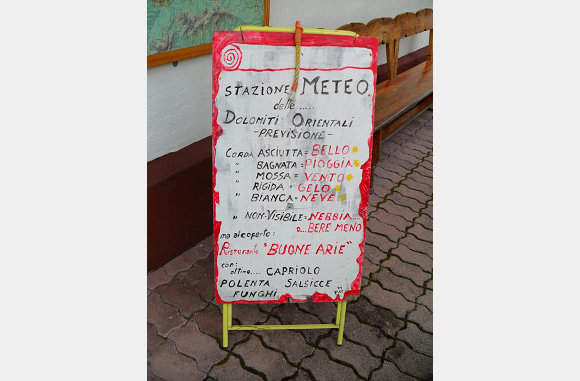 STAZIONE METEO
delle.....
DOLOMITI ORIENTALI
-PREVISIONE-
CORDA ASCIUTTA = BELLO
" BAGNATA = PIOGGIA
" MOSSA = VENTO
" RIGIDA = GELO
" BIANCA = NEVE
" NON-VISIBILE = NEBBIA
o... BERE MENO
ma al coperto:
Ristorante "BUONE ARIE"
con:
ottimo.... CAPRIOLO
POLENTA SALSICCE
FUNGHI